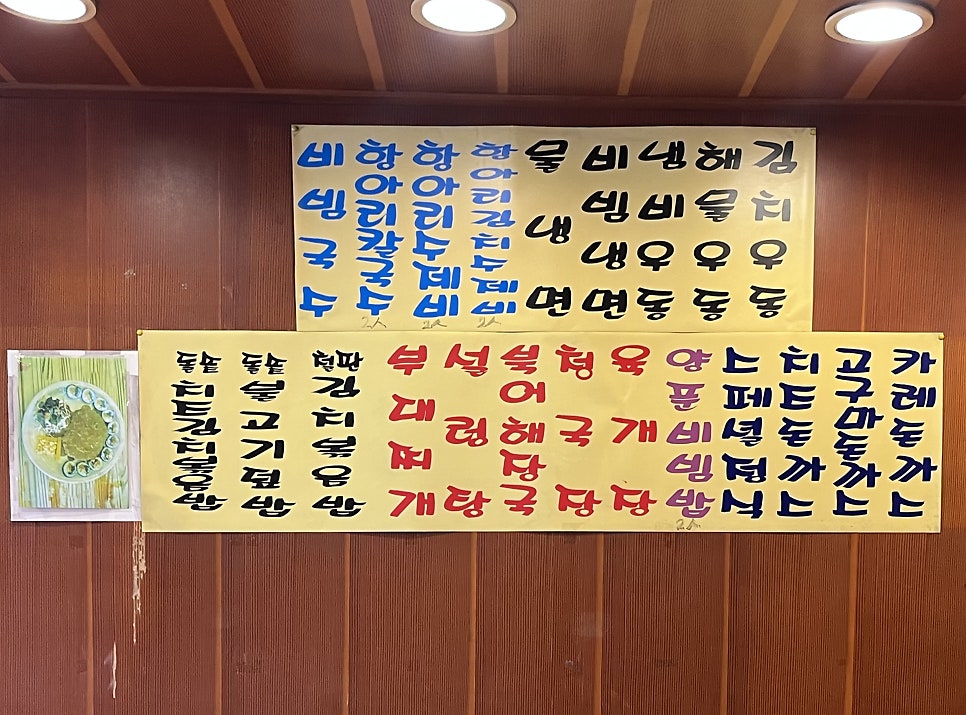 비빔국수
항아리칼국수 2人
항아리수제비 2人
항아리김치수제비 2人
물냉면
비빔냉면
냄비우동
해물우동
김치우동
돌솥치즈김치볶음밥
돌솥불고기덮밥
철판김치볶음밥
부대찌개
설렁탕
북어해장국
청국장
육개장
양푼비빔밥 2人
스페셜정식
치즈돈까스
고구마돈까스
카레돈까스